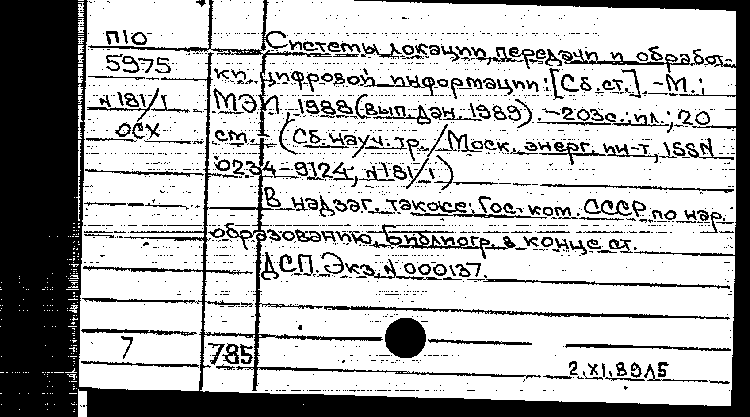 П10
5975
N 181/1
ОСХ
Системы локации, передачи и обработ-
ки цифровой информации: [Сб. ст.]. - М.:
МЭИ, 1988 (вып. дан. 1989). - 203с.: ил.; 20
см. - (Сб. науч. тр. / Моск. энерг. ин-т, ISSN
0234-9124; N 181/1).
В надзаг. также: Гос. ком. СССР по нар.
образованию. Библиогр. в конце ст.
ДСП. Экз. N 000137.
7
785
2.XI.89